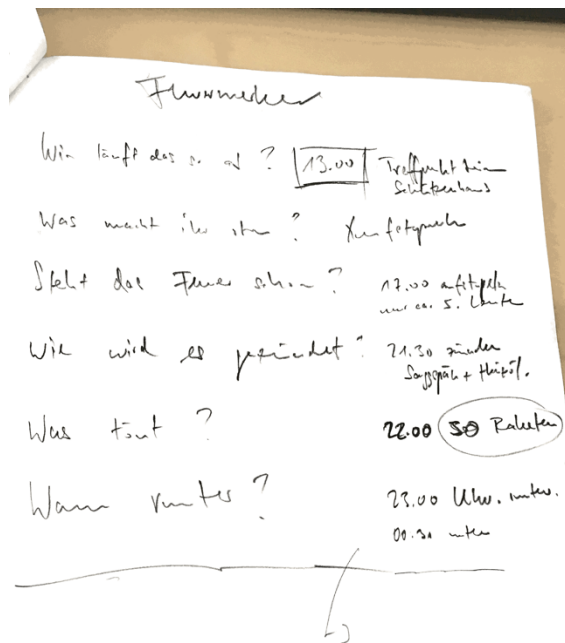 Feuerwerker
Wie läuft das so ab? 13.00 Treffpunkt beim
Schützenhaus
Was macht ihr
Steht das Feuer schon? 17.00
nur ca. 5. Leute
Wie wird es gezündet? 21.30 zünden
+ Heizöl.
Was tönt? 22.00 50 Raketen
Wann runter? 23.00 Uhr. runter.
00.30 unten